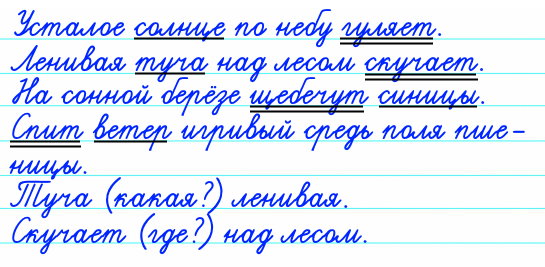 Усталое солнце по небу гуляет.
Ленивая туча над лесом скучает.
На сонной берёзе щебечут синицы.
Спит ветер игривый средь поля пше-
ницы.
Туча (какая?) ленивая.
Скучает (где?) над лесом.